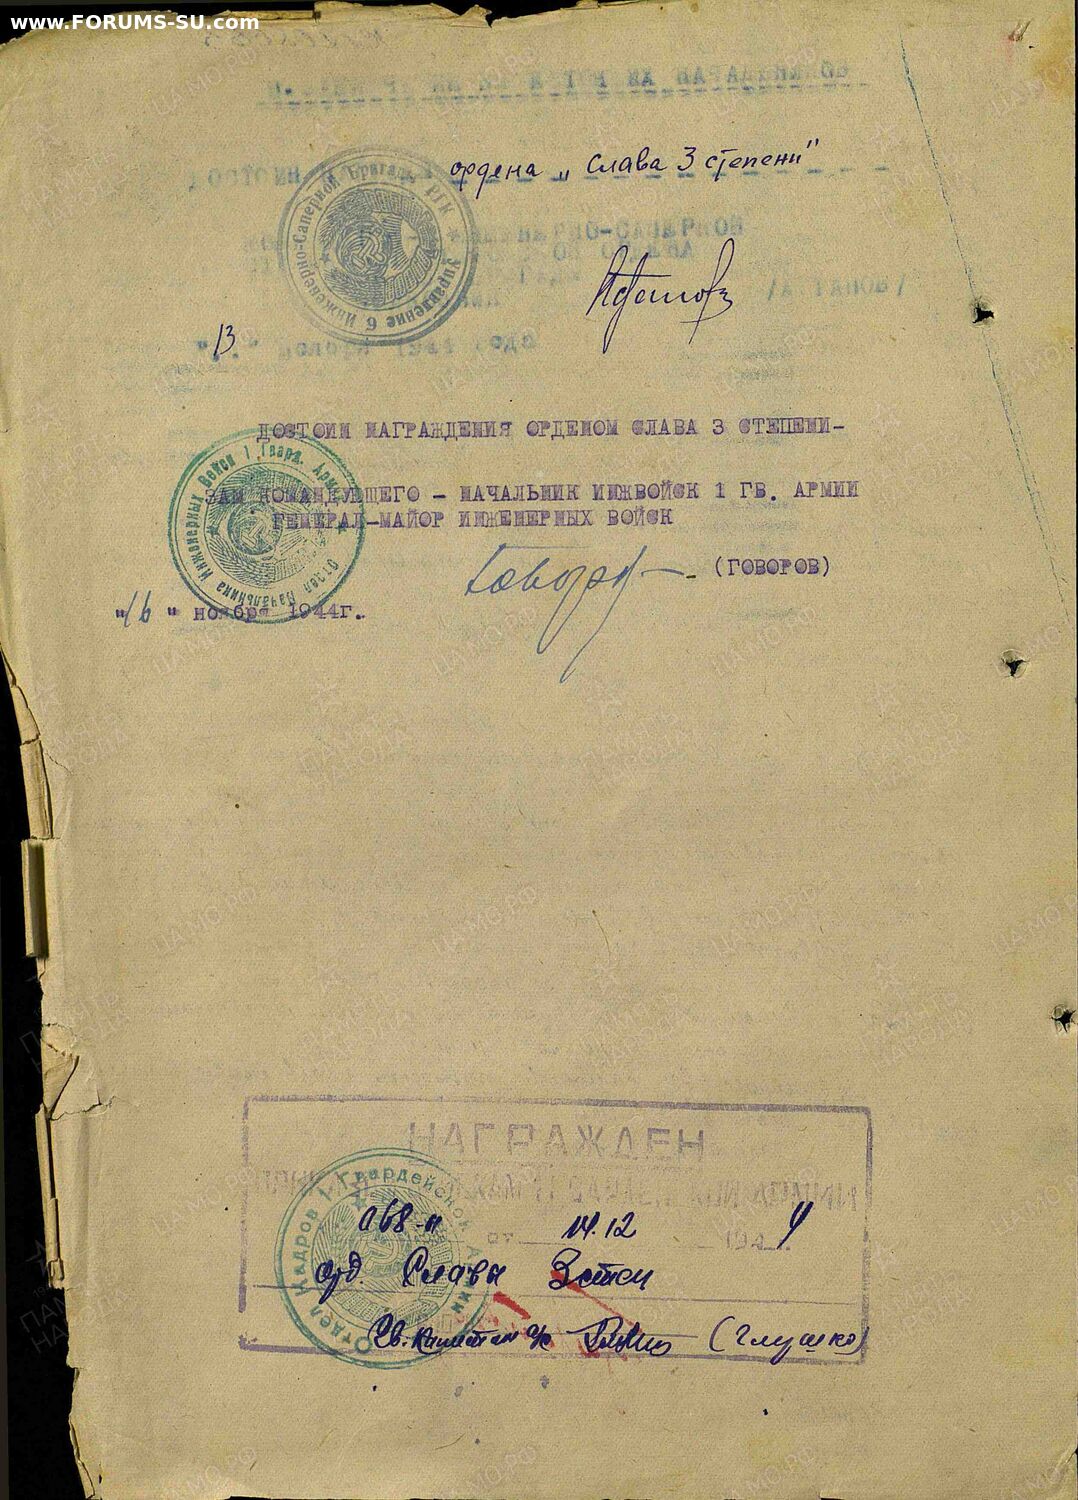 www.FORUMS-SU.com
ордена „Слава 3 степени"
Управление 6 Инженерно-Саперной Бригады РГК
ИНЖЕНЕРНО-САПЕРНОЙ
"13" ноября 1944 года
ДОСТОИН НАГРАЖДЕНИЯ ОРДЕНОМ СЛАВА 3 СТЕПЕНИ-
ЗАМ КОМАНДУЮЩЕГО - НАЧАЛЬНИК ИНЖВОЙСК 1 ГВ. АРМИИ
ГЕНЕРАЛ-МАЙОР ИНЖЕНЕРНЫХ ВОЙСК
Отдел Начальника Инженерных Войск 1 Гвард. Армии
(ГОВОРОВ)
"16" ноября 1944г.
НАГРАЖДЕН
068-н от 14.12 1944
орд. Славы 3 степ
Отдел Кадров 1 Гвардейской Армии
Гв. капитан а/с (Глушко)
ПАМЯТЬ НАРОДА
ЦАМО.РФ